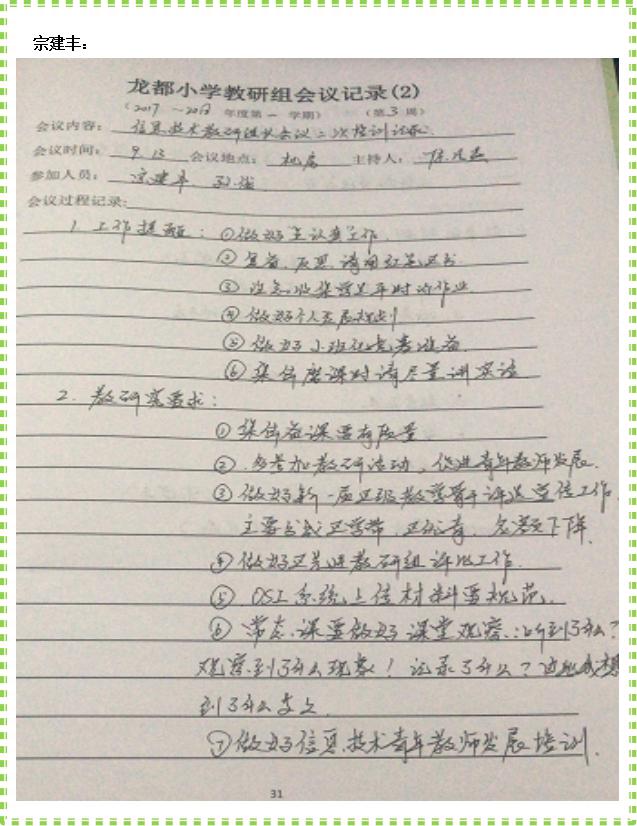 宗建丰：
龙都小学教研组会议记录(2)
（2017 ～2018 年度第一 学期） （第3周）
会议内容： 信息技术教研组长会议二次培训记录
会议时间： 9.13 会议地点： 机房 主持人： 陈
参加人员： 宗建丰
会议过程记录：
1. 工作提醒：①做好"主认真"工作.
②复备、反思、请用红笔书
③注意收集学生平时的作业.
④做好个人发展规划
⑤做好小班化竞赛准备.
⑥集体磨课时请尽量讲实话
2. 教研室要求：
①集体备课要有质量
②.多参加教研活动，促进青年教师发展.
③做好新一届区级教学骨干评选宣传工作.
主要区学带、区优青，名额下降.
④做好区先进教研组评比工作.
⑤.OSI系统上传材料要规范.
⑥常态课要做好课堂观察：听到了什么？
观察到了什么现象！记录了什么？联想
到了什么
⑦做好信息技术青年教师发展培训.
31